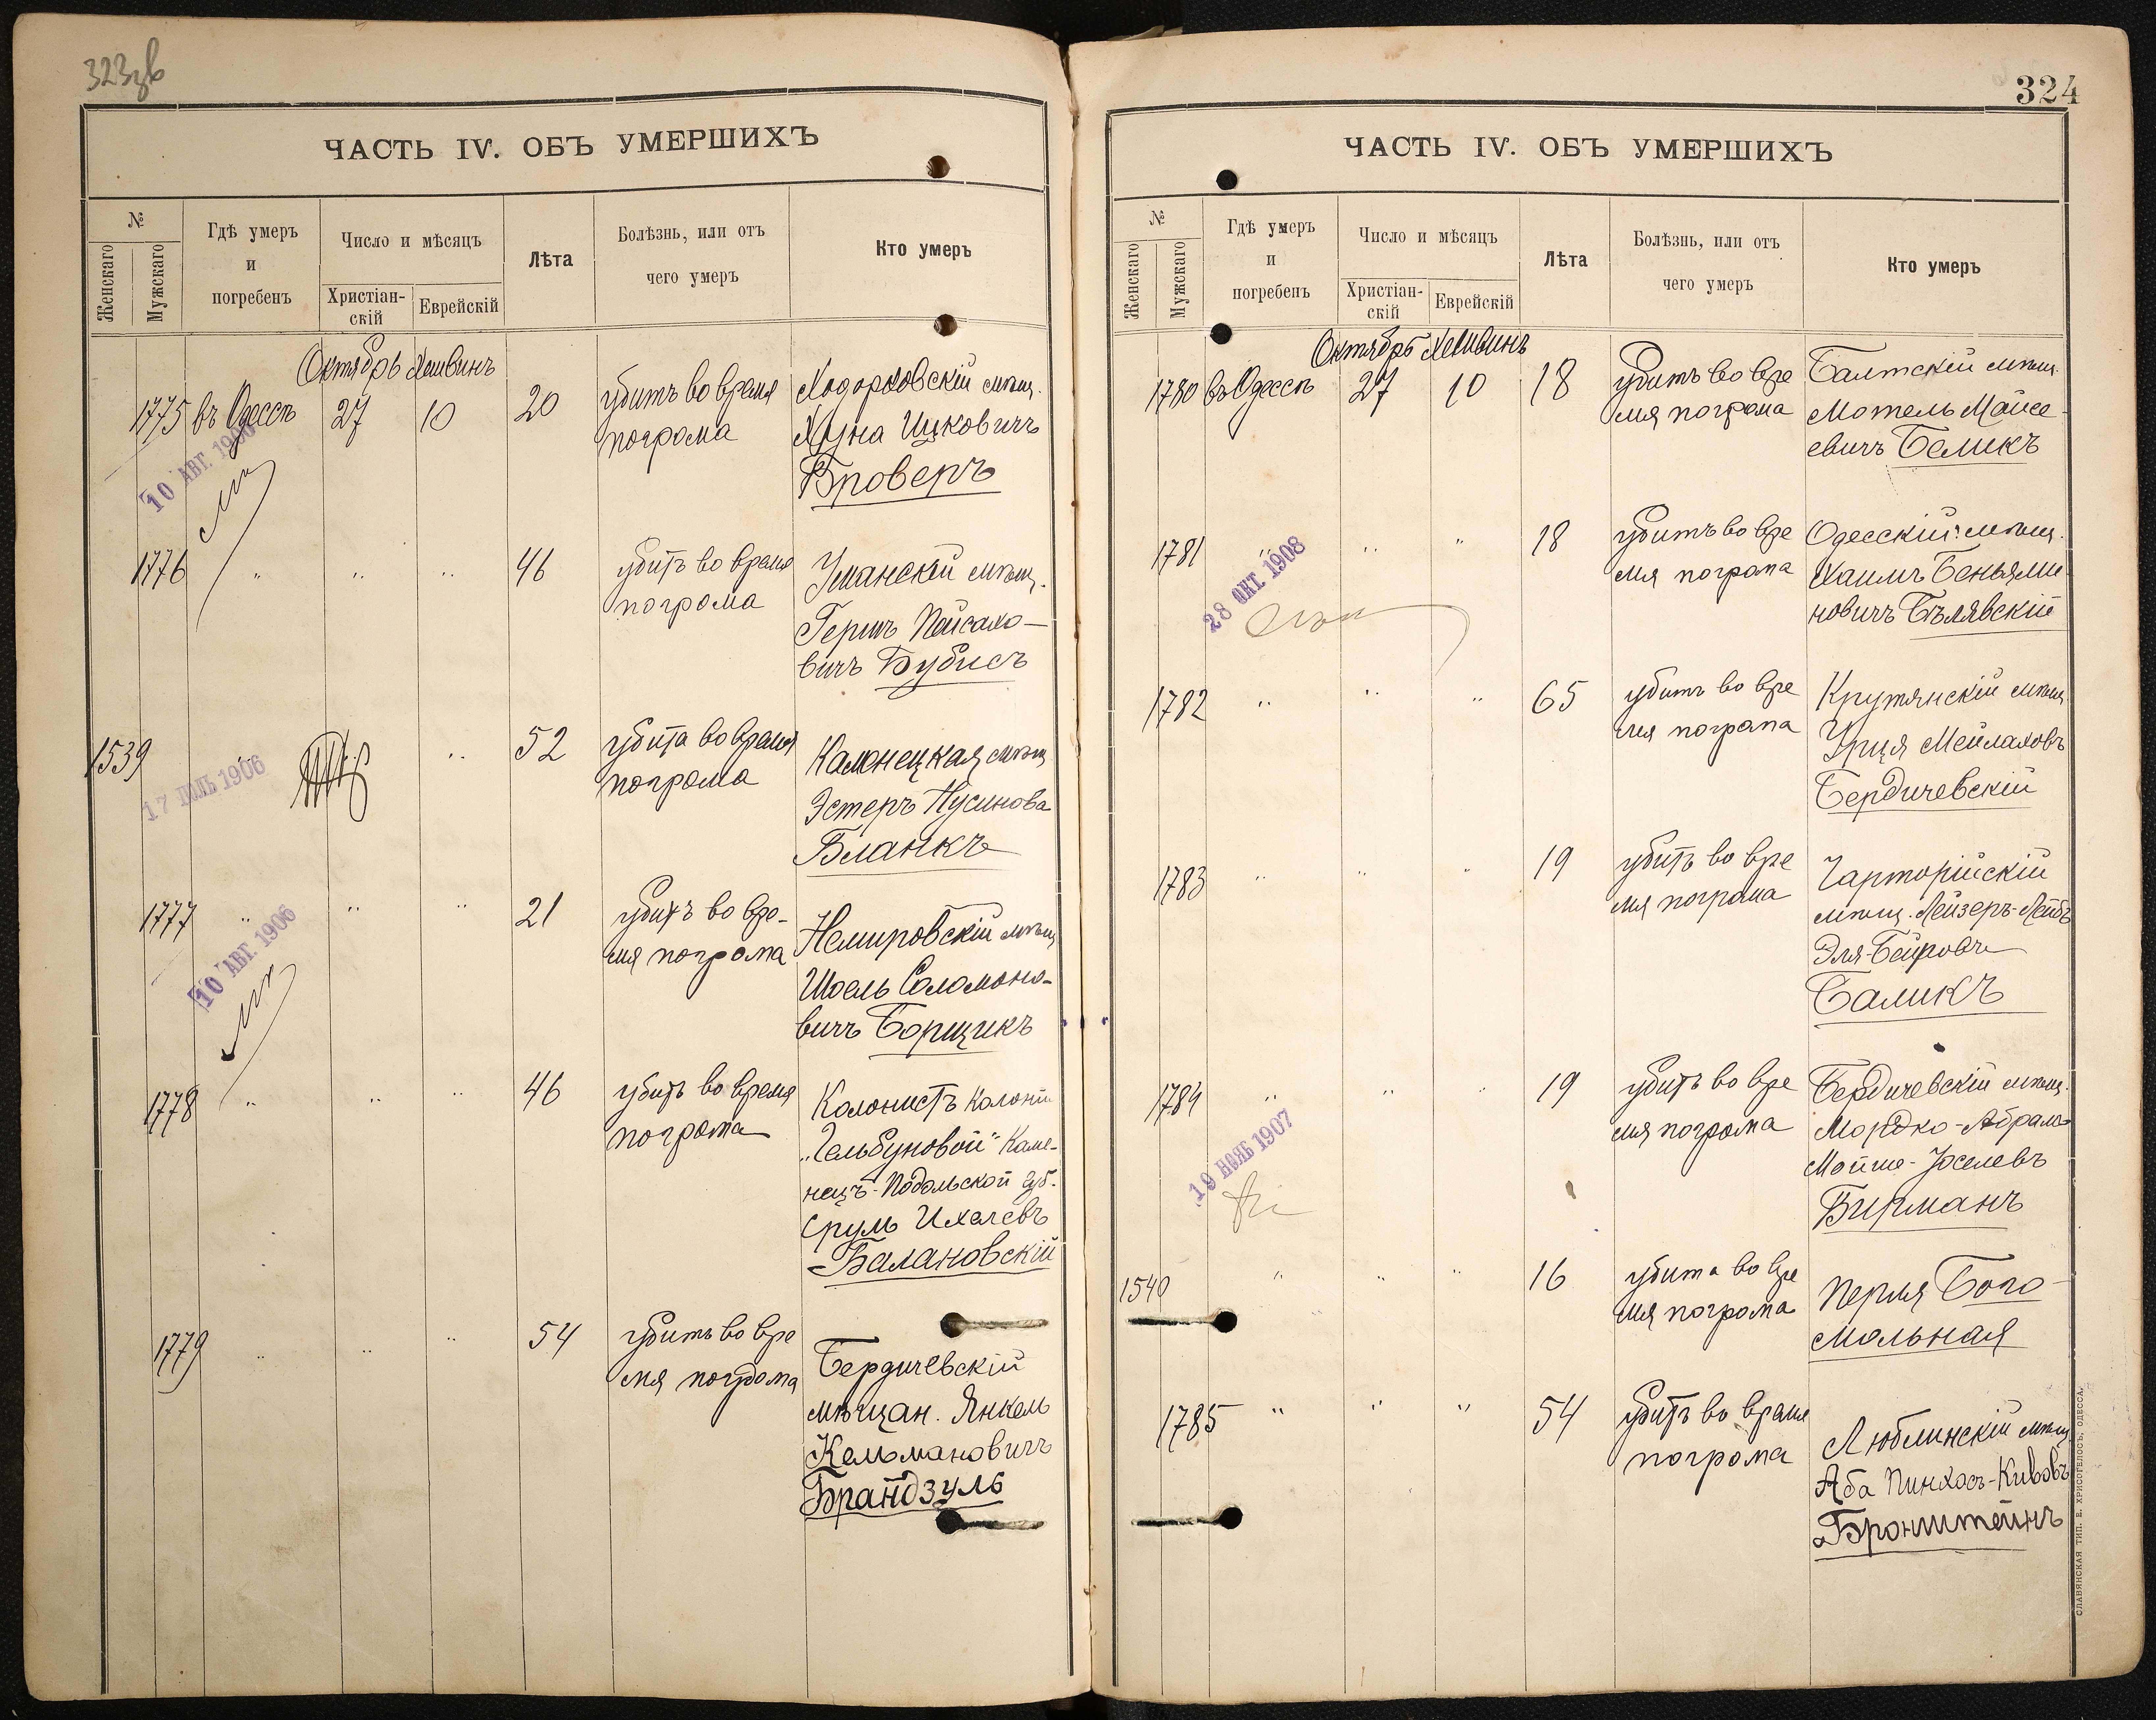 323 зв
ЧАСТЬ IV. ОБЪ УМЕРШИХЪ
№
Женскаго
Мужскаго
Гдѣ умеръ
и
погребенъ
Число и мѣсяцъ
Христіан-
скій
Еврейскій
Лѣта
Болѣзнь, или отъ
чего умеръ
Кто умеръ
Октябрь Хешвинъ
1775 въ Одессѣ 27 10 20 убитъ во время
погрома
Ходорковскій мѣщ.
Хуна Ицковичъ
Броверъ
10 АВГ. 1906
1776 " " " 46 убитъ во время
погрома
Уманскій мѣщ.
Гершъ Пейсахо-
вичъ Бубисъ
1539 " " 52 убита во время
погрома
Каменецкая мѣщ
Эстеръ Нусинова
Бланкъ
17 ІЮЛЬ 1906
1777 " " " 21 убитъ во вре-
мя погрома
Немировскій мѣщ
Шоель Соломоно-
вичъ Борщикъ
10 АВГ. 1906
1778 " " " 46 убитъ во время
погрома
Колонистъ колоніи
"Гельбуновой" Каме-
нецъ-Подольской губ.
Срулъ Ихелевъ
Балановскій
1779 " " " 54 убитъ во вре
мя погрома
Бердичевскій
мѣщан. Янкель
Кельмановичъ
Брандзулъ
324
ЧАСТЬ IV. ОБЪ УМЕРШИХЪ
№
Женскаго
Мужскаго
Гдѣ умеръ
и
погребенъ
Число и мѣсяцъ
Христіан-
скій
Еврейскій
Лѣта
Болѣзнь, или отъ
чего умеръ
Кто умеръ
Октябрь Хешвинъ
1780 въ Одессѣ 27 10 18 убитъ во вре
мя погрома
Балтскій мѣщ.
Мотель Мойсе-
евичъ Беликъ
1781 " " " 18 убитъ во вре
мя погрома
Одесскій мѣщ.
Хаимъ Беньями-
новичъ Бѣлявскій
28 ОКТ. 1908
1782 " " " 65 убитъ во вре
мя погрома
Крутянскій мѣщ.
Уриця Мейлаховъ
Бердичевскій
1783 " " " 19 убитъ во вре
мя погрома
Чарторійскій
мѣщ. Лейзеръ-Лейбъ
Эля-Беировъ
Баликъ
1784 " " " 19 убитъ во вре
мя погрома
Бердичевскій мѣщ.
Мордко-Абрамъ
Мойше-Іоселевъ
Бирманъ
19 НОЯБ 1907
1540 " " " 16 убита во вре
мя погрома
Перля Бого-
мольная
1785 " " " 54 убитъ во время
погрома
Люблинскій мѣщ
Аба Пинхосъ-Кивовъ
Бронштейнъ
СЛАВЯНСКАЯ ТИП. Е. ХРИСОГЕЛОСЪ, ОДЕССА.